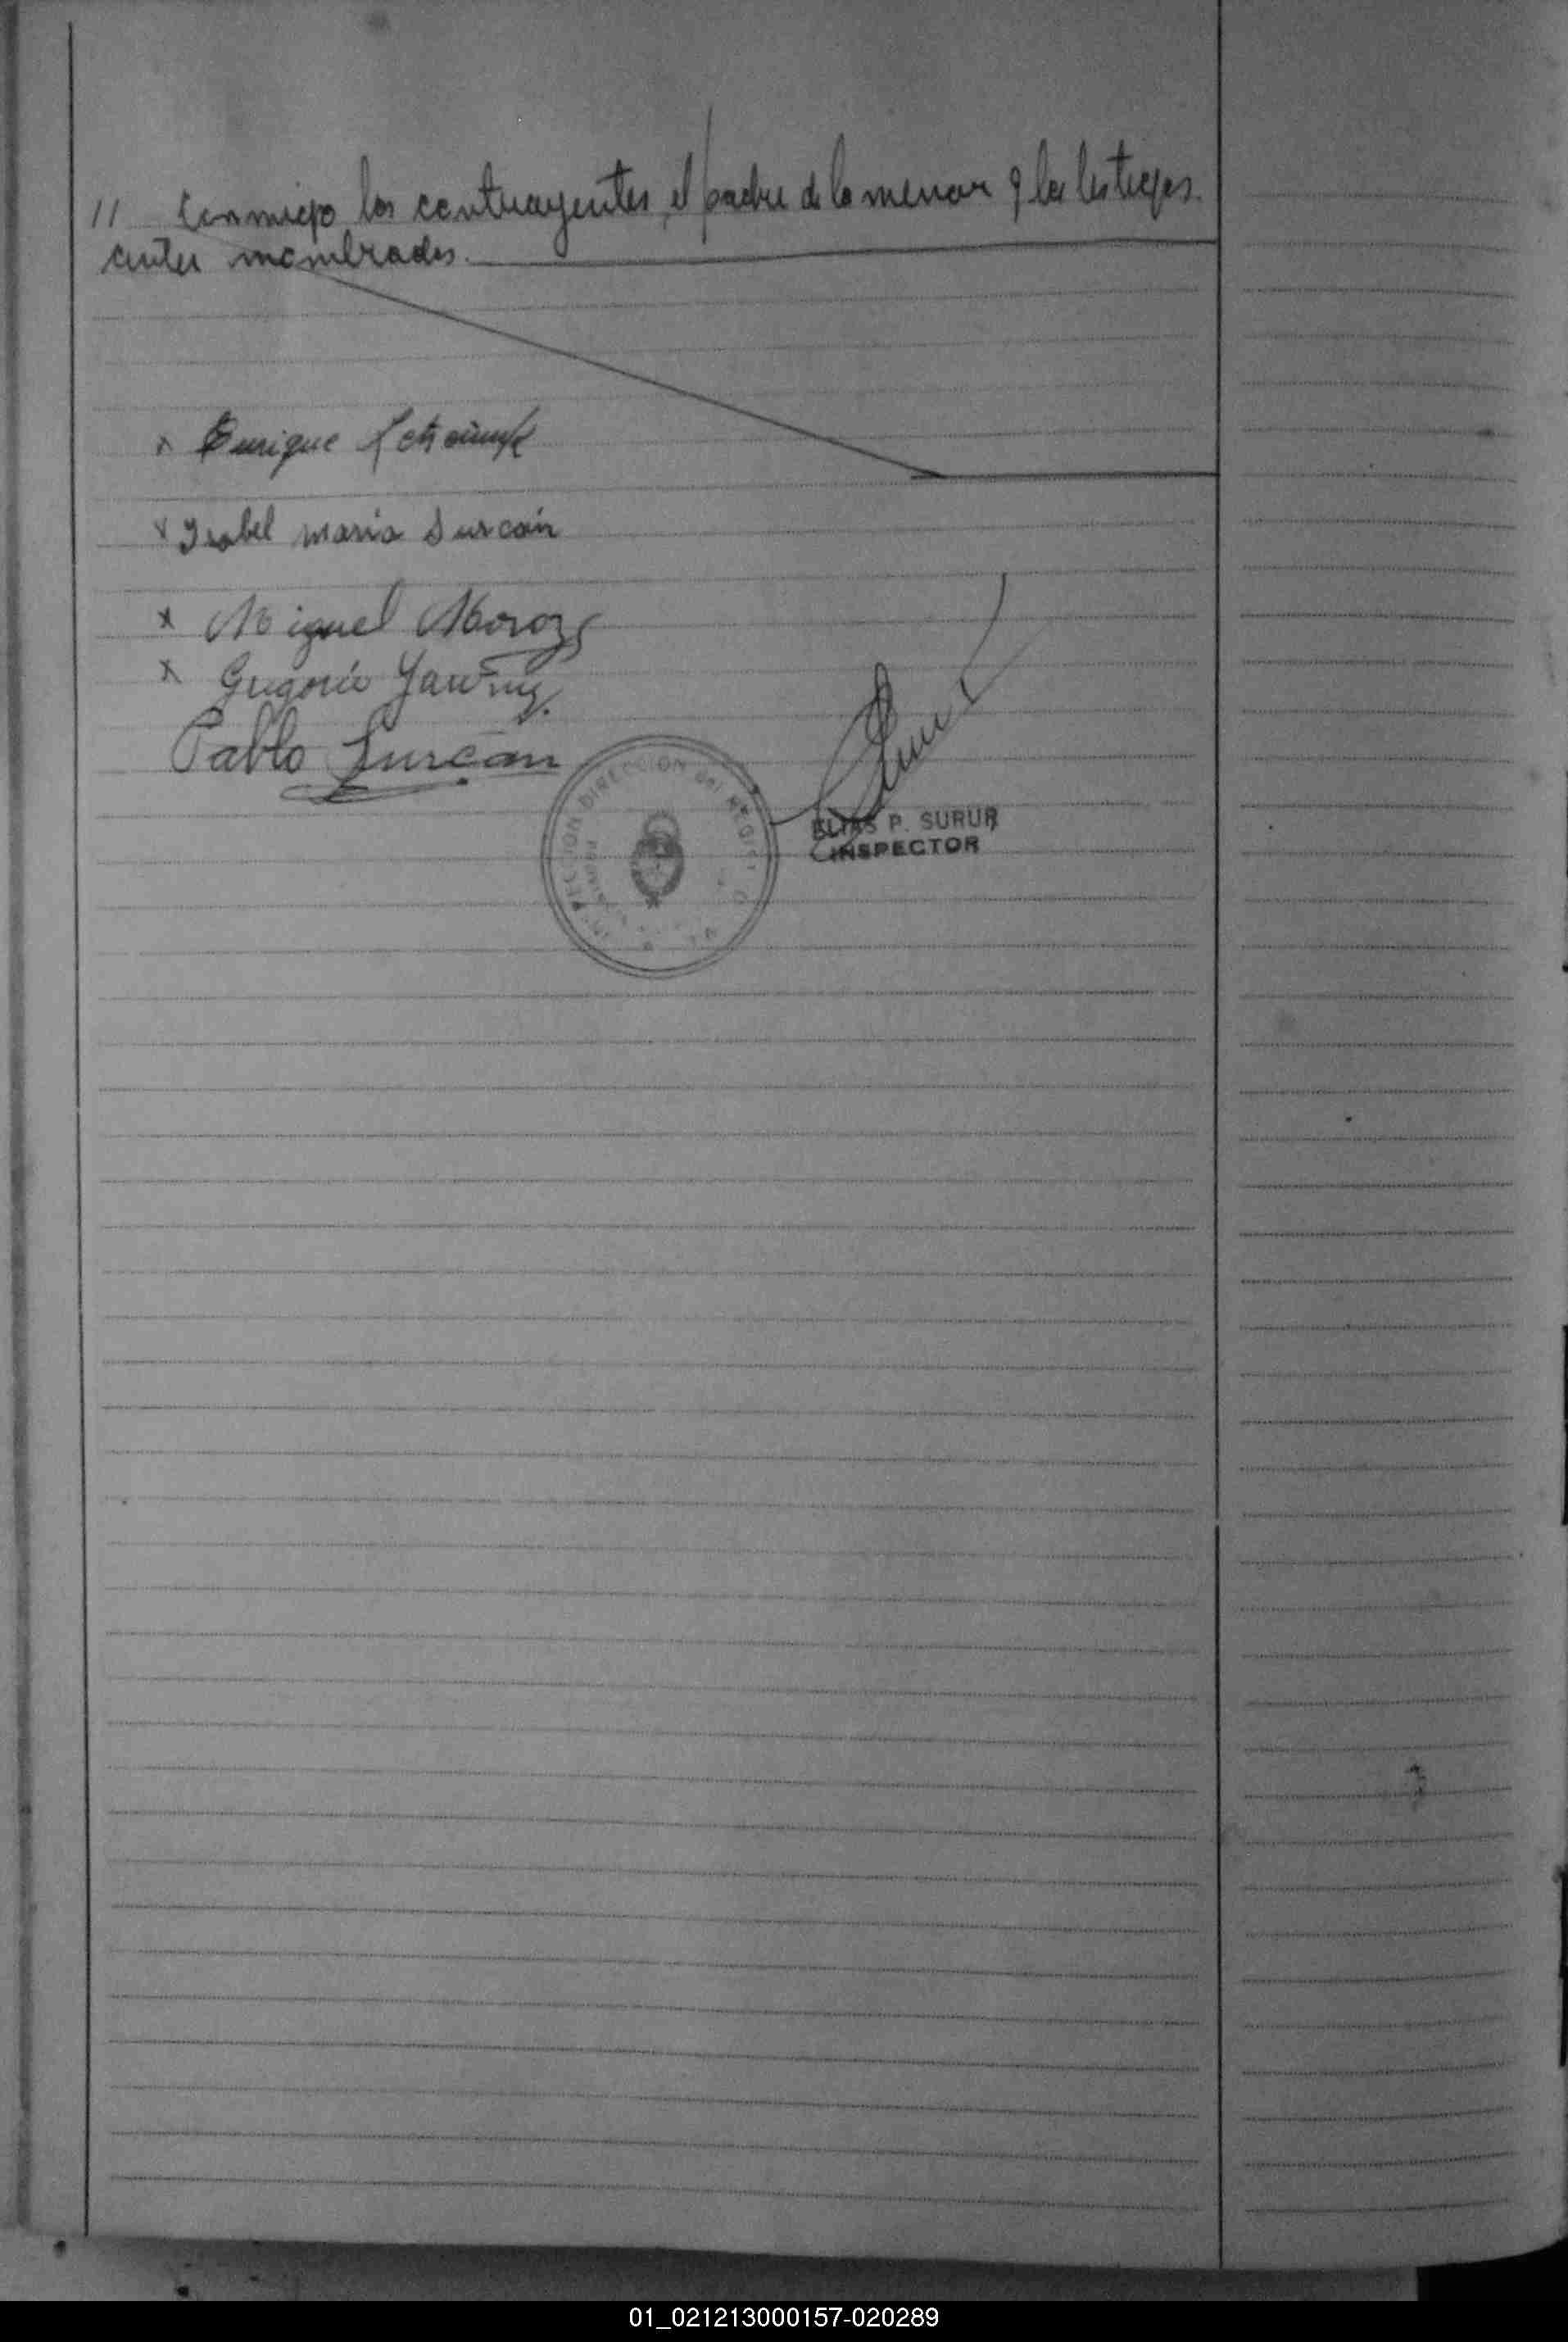 // Conmigo los contrayentes, el padre de la menor y los testigos
antes nombrados.
x Enrique
x Isabel maria Surcan
x Miguel Moroz
x Gregorio
Pablo Surcan
DIRECCION del REGISTRO
ELIAS P. SURUR
INSPECTOR
01_021213000157-020289